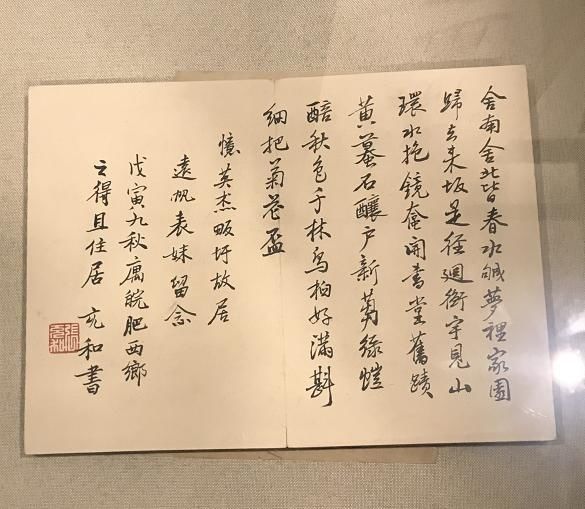 舍南舍北皆春水緘夢裡家園
歸去来坂是徑迴衡宇見山
環水抱鏡奩開書堂舊蹟
黄蔓石釀户新蒭綠
醅秋色千林烏桕好滿斟
細把菊花盃
憶英杰畈圩故居
遠帆表妹留念
戊寅九秋寓皖肥西鄉
之得且住居 充和書